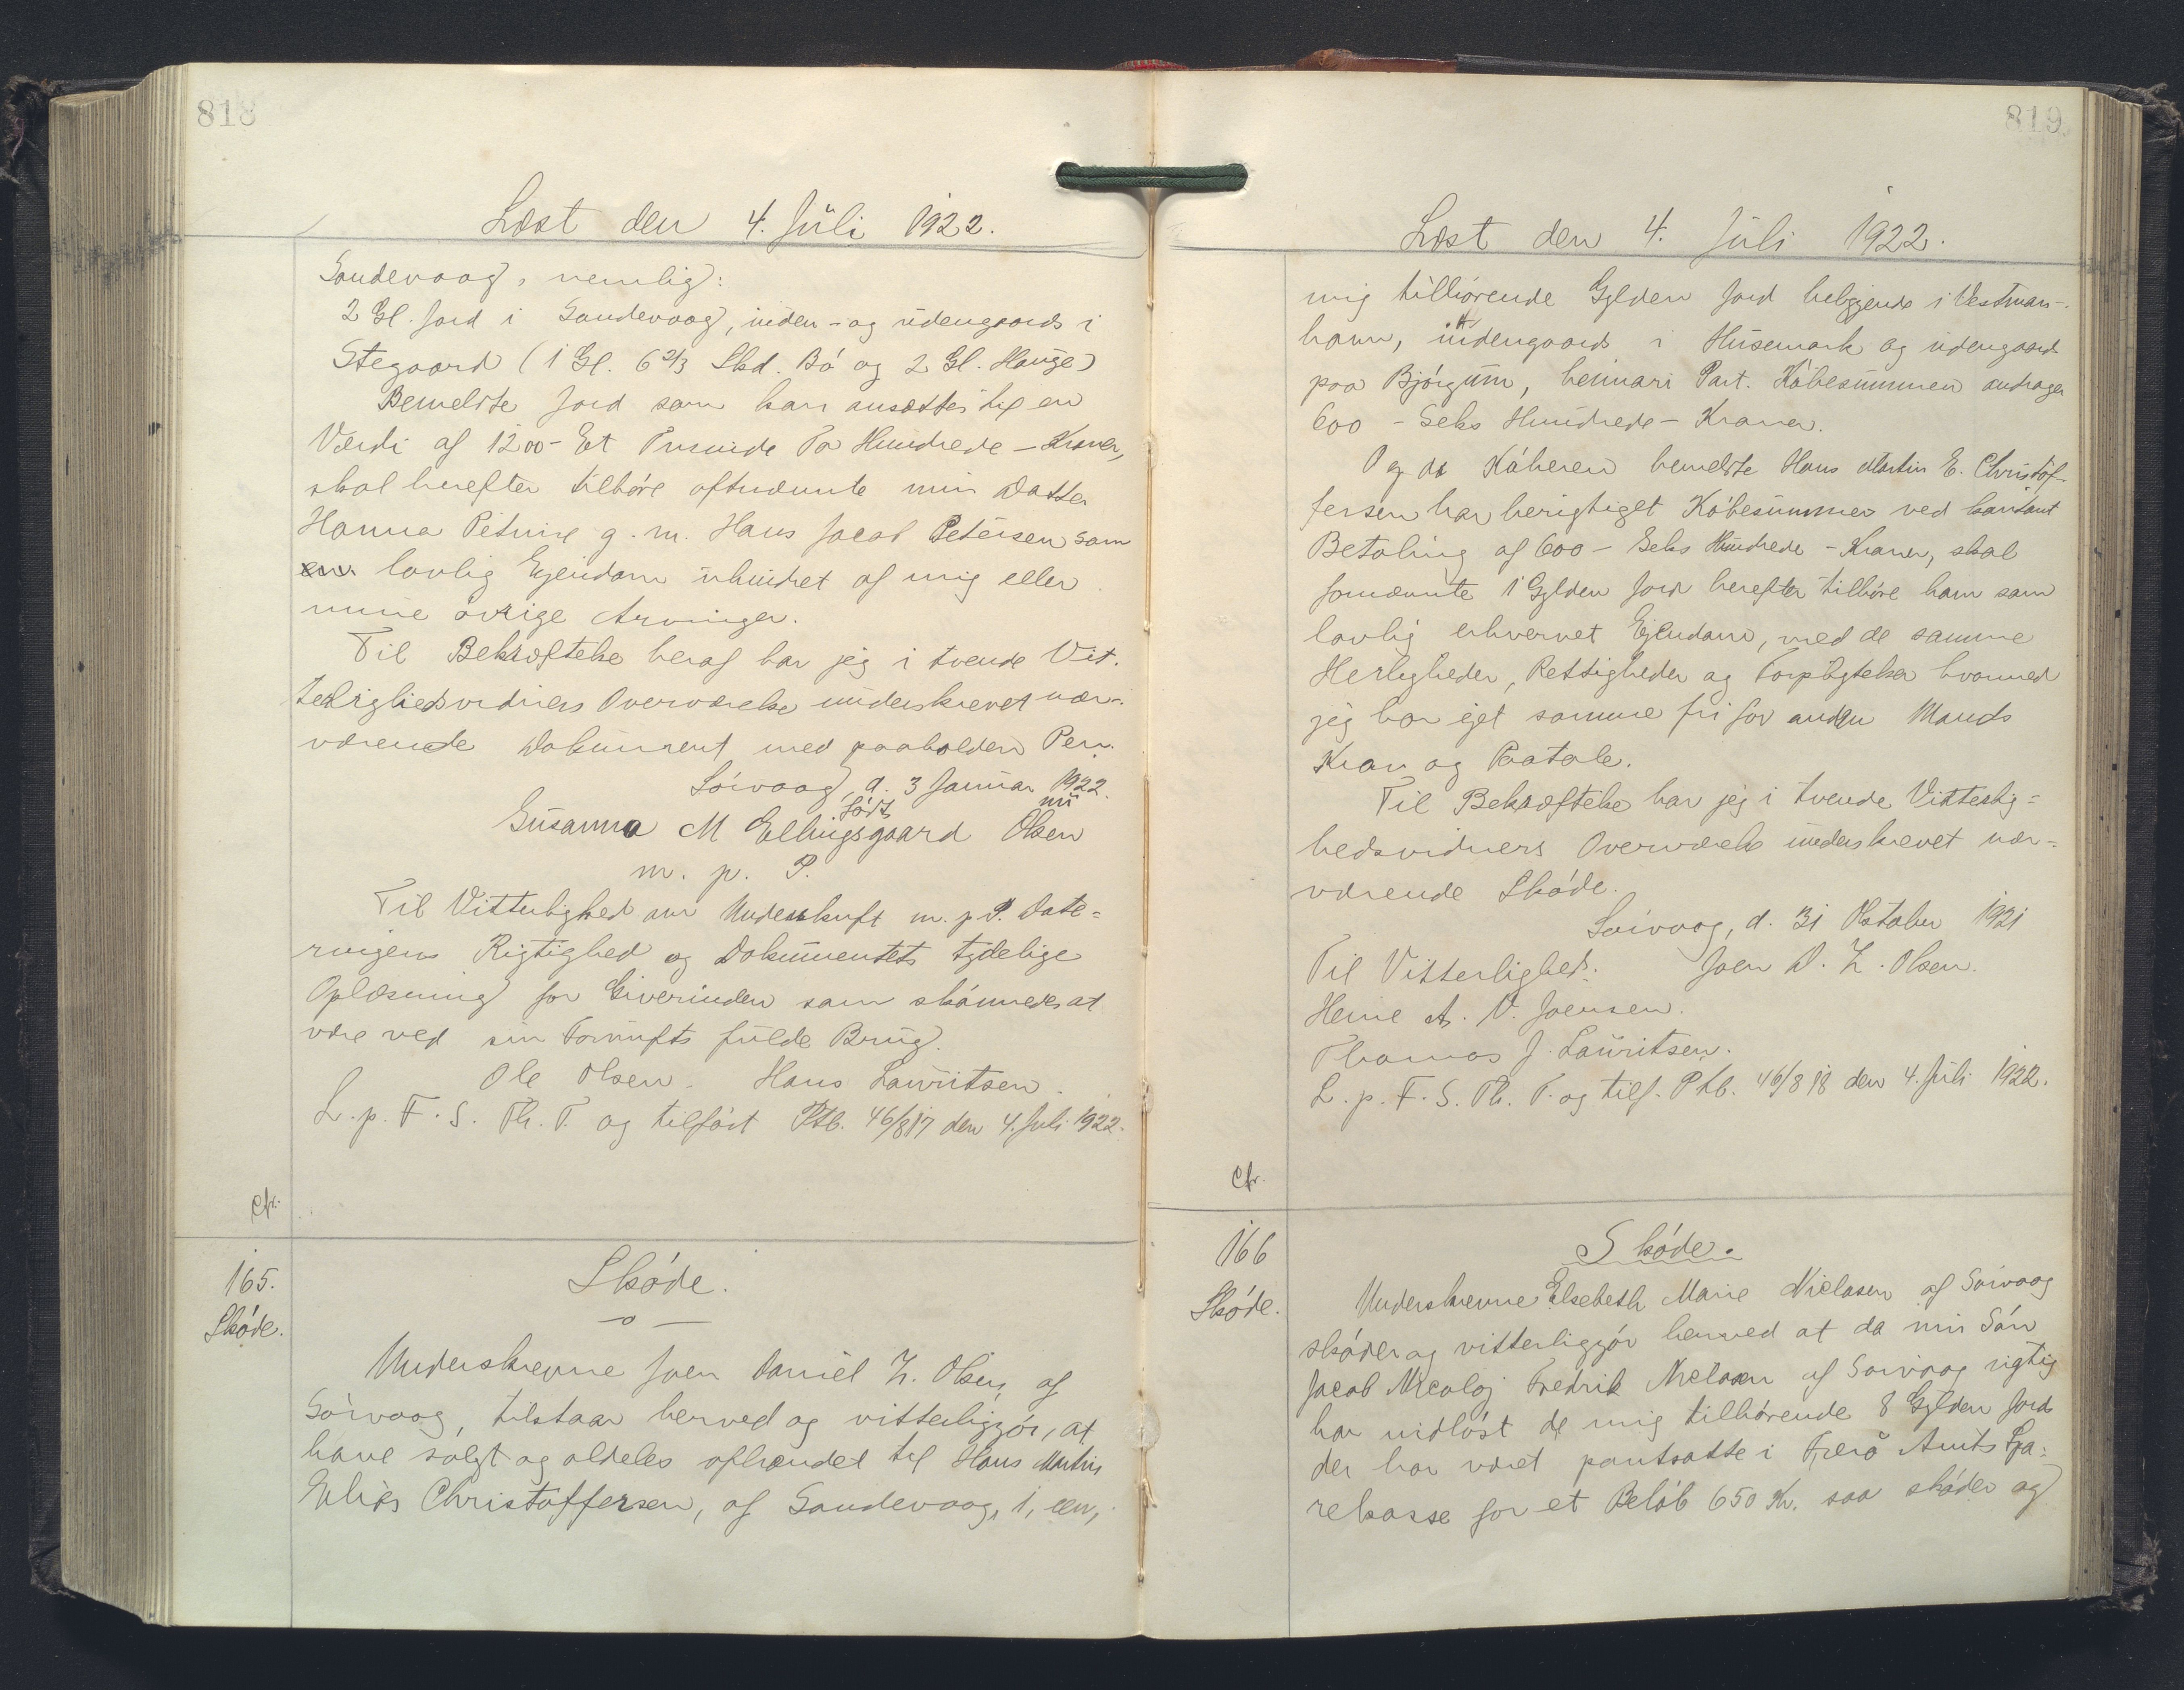 818
Læst den 4. Juli 1922.
Sandevaag, nemlig:
2 Gl. Jord i Sandevaag, inden- og udengaards i
Stegaard (1 Gl. 6 2/3 Skd. Bø og 2 Gl. Hauge)
Bemeldte Jord som kan ansættes til en
Værdi af 1200 - Et Tusinde To Hundrede - Kroner,
skal herefter tilhøre oftnævnte min Datter
Hanna Petrine g. m. Hans Jacob Petersen som
en lovlig Ejendom uhindret af mig eller
mine øvrige Arvinger.
Til Bekræftelse heraf har jeg i tvende Vit-
terlighedsvidners Overværelse underskrevet nær-
værende Dokument med paaholden Pen.
Sörvaag, d. 3 Januar 1922.
født nu
Susanna M Ellingsgaard Olsen
m. p. P.
Til Vitterlighed om Underskrift m. p. P. Date-
ringens Rigtighed og Dokumentets tydelige
Oplæsning for Giverinden som skønnedes at
være ved sin Fornufts fulde Brug.
Ole Olsen. Hans Lauritsen.
L. p. F. S. Th. T. og tilført Ptb. 46/817 den 4. Juli 1922.
Cfr.
165.
Skøde.
Skøde.
Underskrevne Joen Daniel Z. Olsen, af
Sörvaag, tilstaar herved og vitterliggjør, at
have solgt og aldeles afhændet til Hans Martin
Elias Christoffersen, af Sandevaag, 1, een,
819
Læst den 4. Juli 1922.
mig tilhørende Gylden Jord beliggende i Vestman-
havn, indengaards i Húsemark og udengaards
paa Bjørgum, heimari Part. Købesummen andrager
600 - Seks Hundrede - Kroner.
Og da Køberen bemeldte Hans Martin E. Christof-
fersen har berigtiget Købesummen ved kontant
Betaling af 600 - Seks Hundrede - Kroner, skal
fornævnte 1 Gylden Jord herefter tilhøre ham som
lovlig erhvervet Ejendom, med de samme
Herligheder, Rettigheder og Forpligtelser hvormed
jeg har ejet samme fri for anden Mands
Krav og Paatale.
Til Bekræftelse har jeg i tvende Vitterlig-
hedsvidners Overværelse underskrevet nær-
værende Skøde.
Sörvaag, d. 31 Oktober 1921
Til Vitterlighed: Joen D. Z. Olsen.
Heine A. V. Joensen.
Thomas J. Lauritsen.
L. p. F. S. Th. T. og tilf. Ptb. 46/818 den 4. Juli 1922.
Cfr.
166
Skøde.
Skøde.
Underskrevne Elsebeth Marie Nielasen af Sörvaag
skøder og vitterliggjør herved at da min Søn
Jacob Nicolaj Fredrik Nielasen af Sörvaag rigtig
har indløst de mig tilhørende 8 Gylden Jord
der har været pantsatte i Færø Amts Spa-
rekasse for et Beløb 650 Kr. saa skøder og